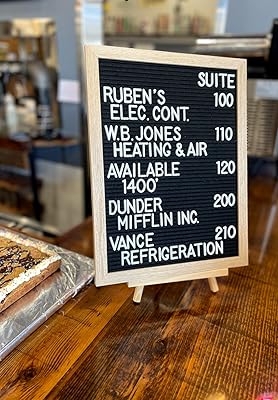 SUITE
RUBEN'S 100
ELEC. CONT.
W.B. JONES 110
HEATING & AIR
AVAILABLE 120
1400'
DUNDER 200
MIFFLIN INC.
VANCE 210
REFRIGERATION